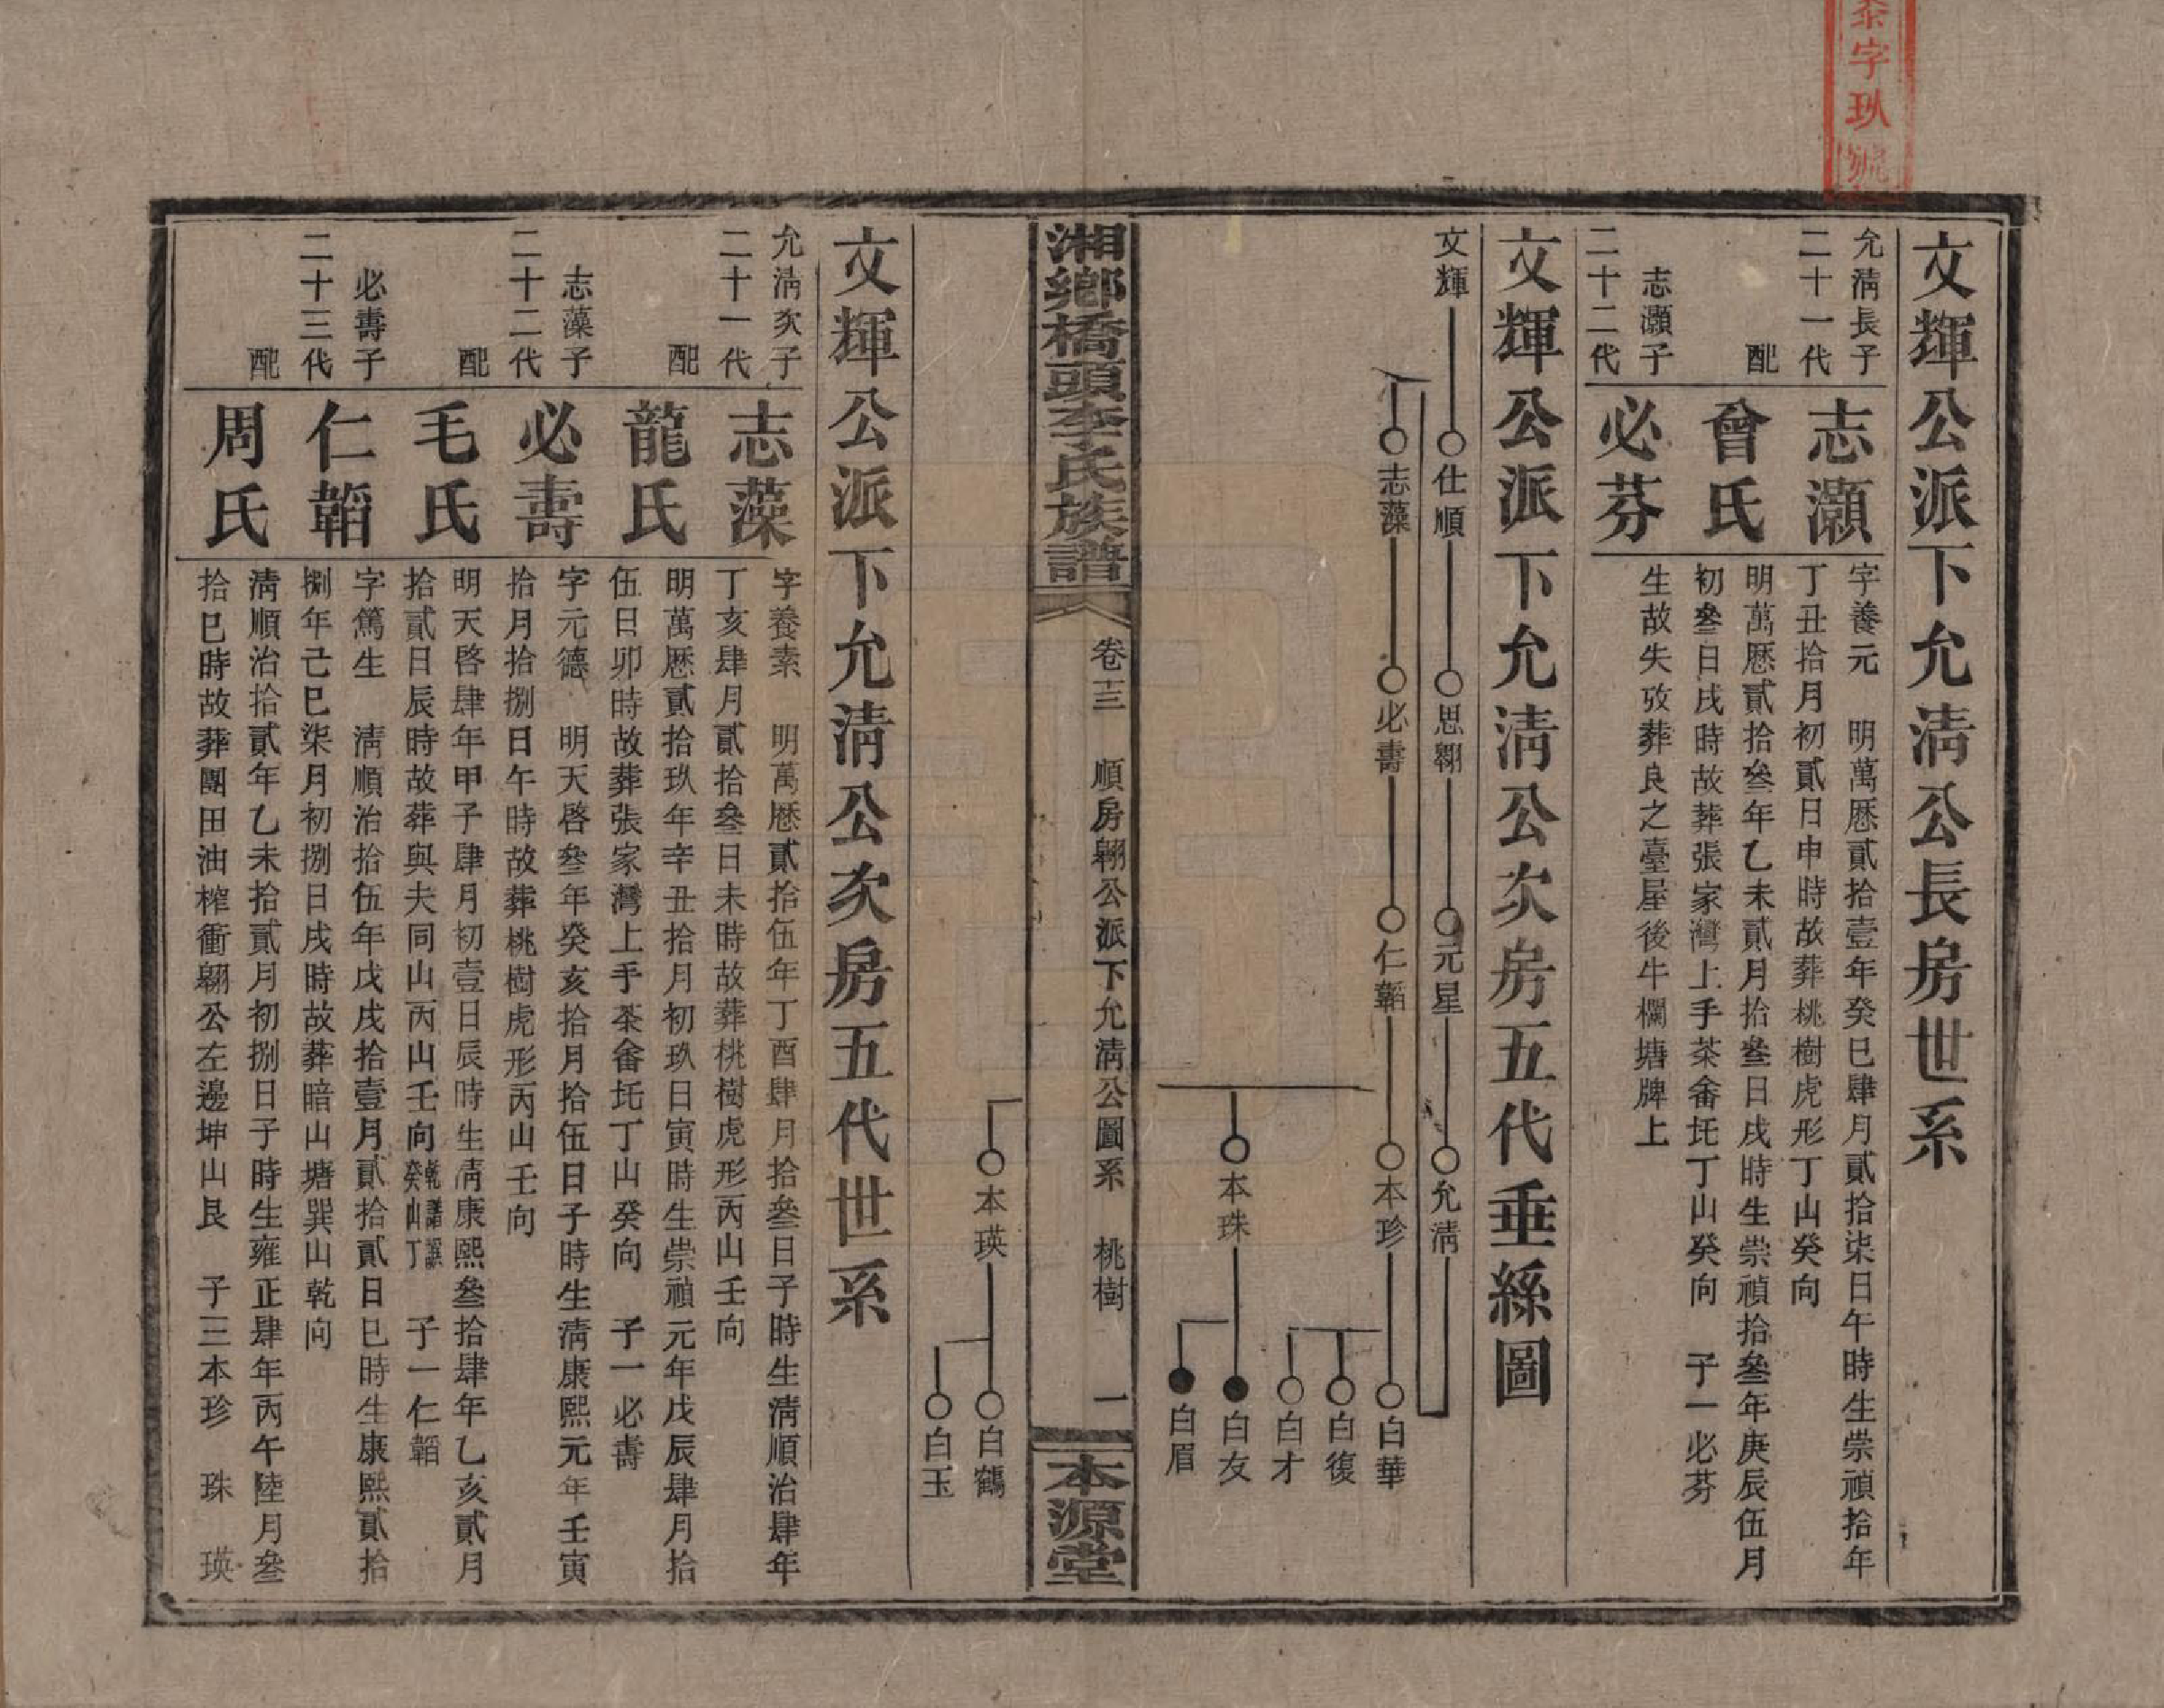 泰字玖號
文輝公派下允淸公長房世系
允淸長子
二十一代
志灝
字養元　明萬厯貳拾壹年癸巳肆月貳拾柒日午時生崇禎拾年
丁丑拾月初貳日申時故葬桃樹虎形丁山癸向
配
曾氏
明萬厯貳拾叁年乙未貳月拾叁日戌時生崇禎拾叁年庚辰伍月
初叁日戌時故葬張家灣上手茶畬圫丁山癸向　子一必芬
志灝子
二十二代
必芬
生故失攷葬良之臺屋後牛欄塘牌上
文輝公派下允淸公次房五代垂絲圖
文輝
仕順
思翱
元星
允淸
志藻
必壽
仁韜
本珍
白華
白復
白才
本珠
白友
白眉
湘鄉橋頭李氏族譜
卷十三　順房翱公派下允淸公圖系　桃樹　一
本源堂
本瑛
白鶴
白玉
文輝公派下允淸公次房五代世系
允淸次子
二十一代
志藻
字養素　明萬厯貳拾伍年丁酉肆月拾叁日子時生淸順治肆年
丁亥肆月貳拾叁日未時故葬桃樹虎形丙山壬向
配
龍氏
明萬厯貳拾玖年辛丑拾月初玖日寅時生崇禎元年戊辰肆月拾
伍日卯時故葬張家灣上手茶畬圫丁山癸向　子一必壽
志藻子
二十二代
必壽
字元德　明天啓叁年癸亥拾月拾伍日子時生淸康熙元年壬寅
拾月拾捌日午時故葬桃樹虎形丙山壬向
配
毛氏
明天啓肆年甲子肆月初壹日辰時生淸康熙叁拾肆年乙亥貳月
拾貳日辰時故葬與夫同山丙山壬向　子一仁韜
必壽子
二十三代
仁韜
字篤生　淸順治拾伍年戊戌拾壹月貳拾貳日巳時生康熙貳拾
捌年己巳柒月初捌日戌時故葬暗山塘巽山乾向
配
周氏
淸順治拾貳年乙未拾貳月初捌日子時生雍正肆年丙午陸月叁
拾巳時故葬團田油榨衝翱公左邊坤山艮　子三本珍　珠　瑛